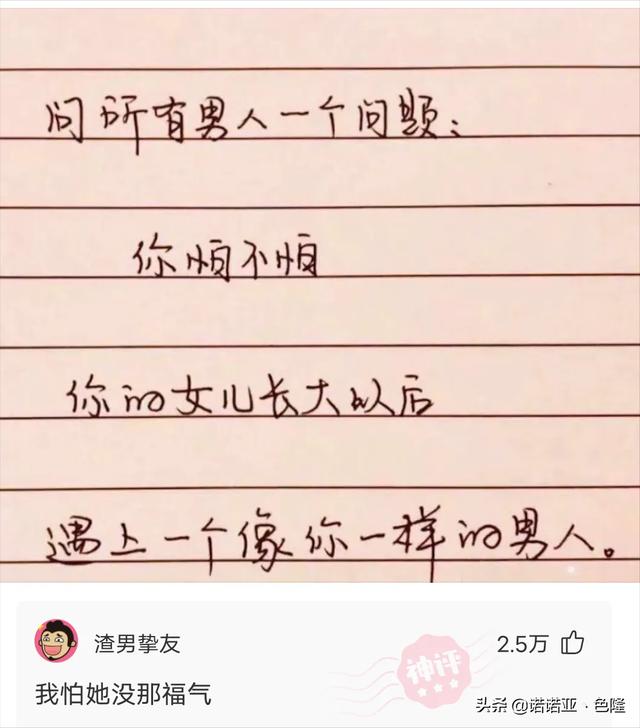 问所有男人一个问题：
你怕不怕
你的女儿长大以后
遇上一个像你一样的男人。
渣男挚友
2.5万
神评
我怕她没那福气
头条 @诺诺亚·色隆